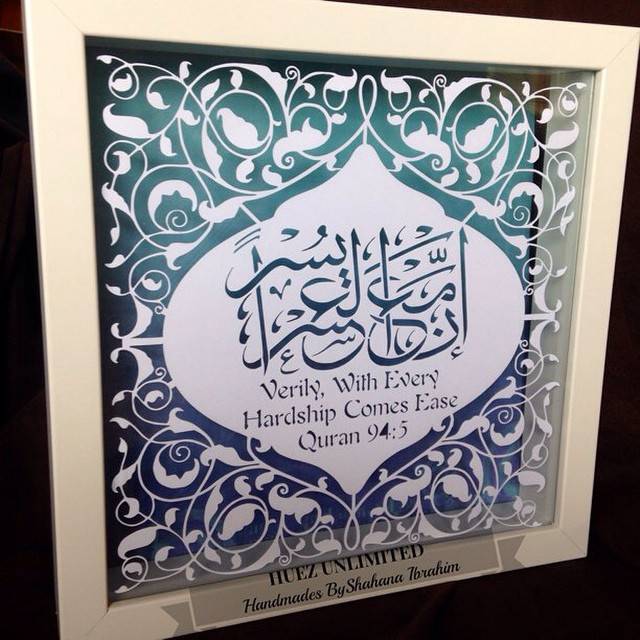 إنّ مع العسر يسرًا
Verily, With Every
Hardship Comes Ease
Quran 94:5
HUEZ UNLIMITED
Handmades ByShahana Ibrahim